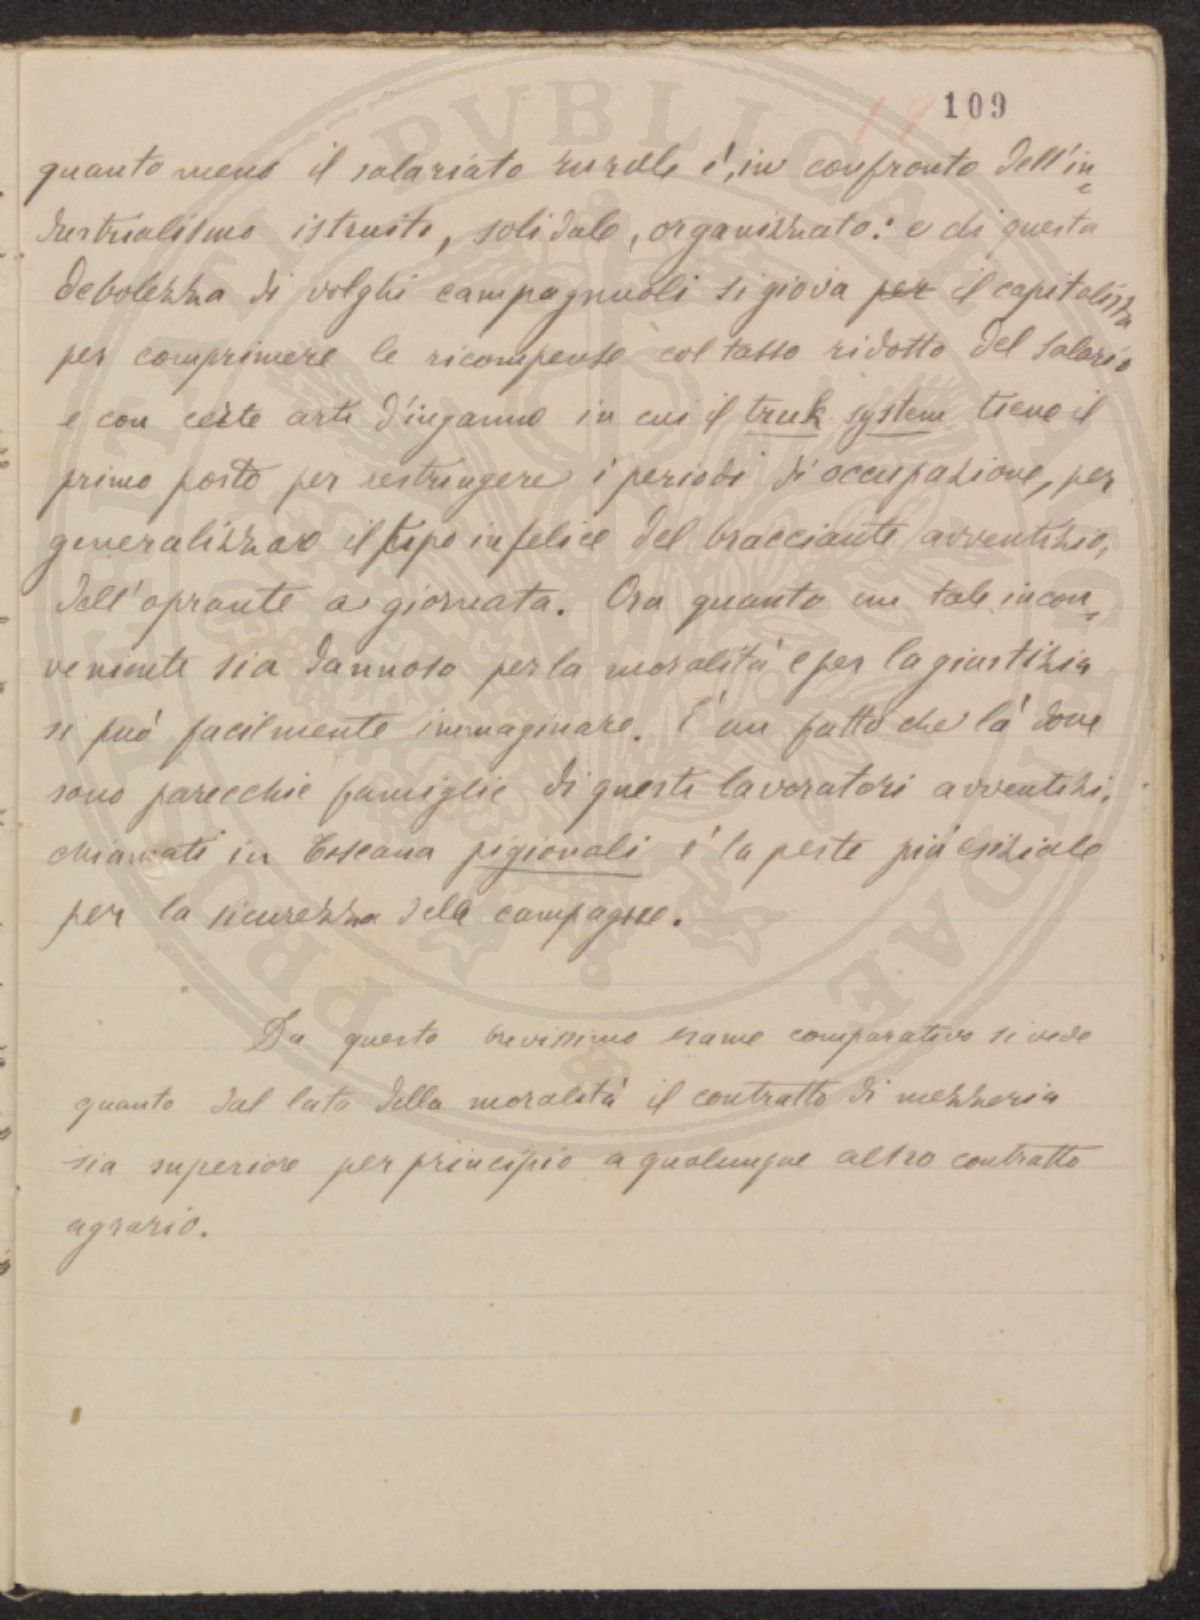 109
quanto meno il salariato rurale é, in confronto dell'in=
dustrialismo istruito, solidale, organizzato: e di questa
debolezza di volghi campagnuoli si giova per il capitalista
per comprimere le ricompense col tasso ridotto del salario
e con certe arti d'inganno in cui il truk system tiene il
primo posto per restringere i periodi di occupazione, per
generalizzare il tipo infelice del bracciante avventizio,
dell'oprante a giornata. Ora quanto un tale incon=
veniente sia dannoso per la moralità e per la giustizia
si può facilmente immaginare. É un fatto che là dove
sono parecchie famiglie di questi lavoratori avventizi,
chiamati in Toscana pigionali é la peste più esiziale
per la sicurezza delle campagne.
Da questo brevissimo esame comparativo si vede
quanto dal lato della moralità il contratto di mezzeria
sia superiore per principio a qualunque altro contratto
agrario.